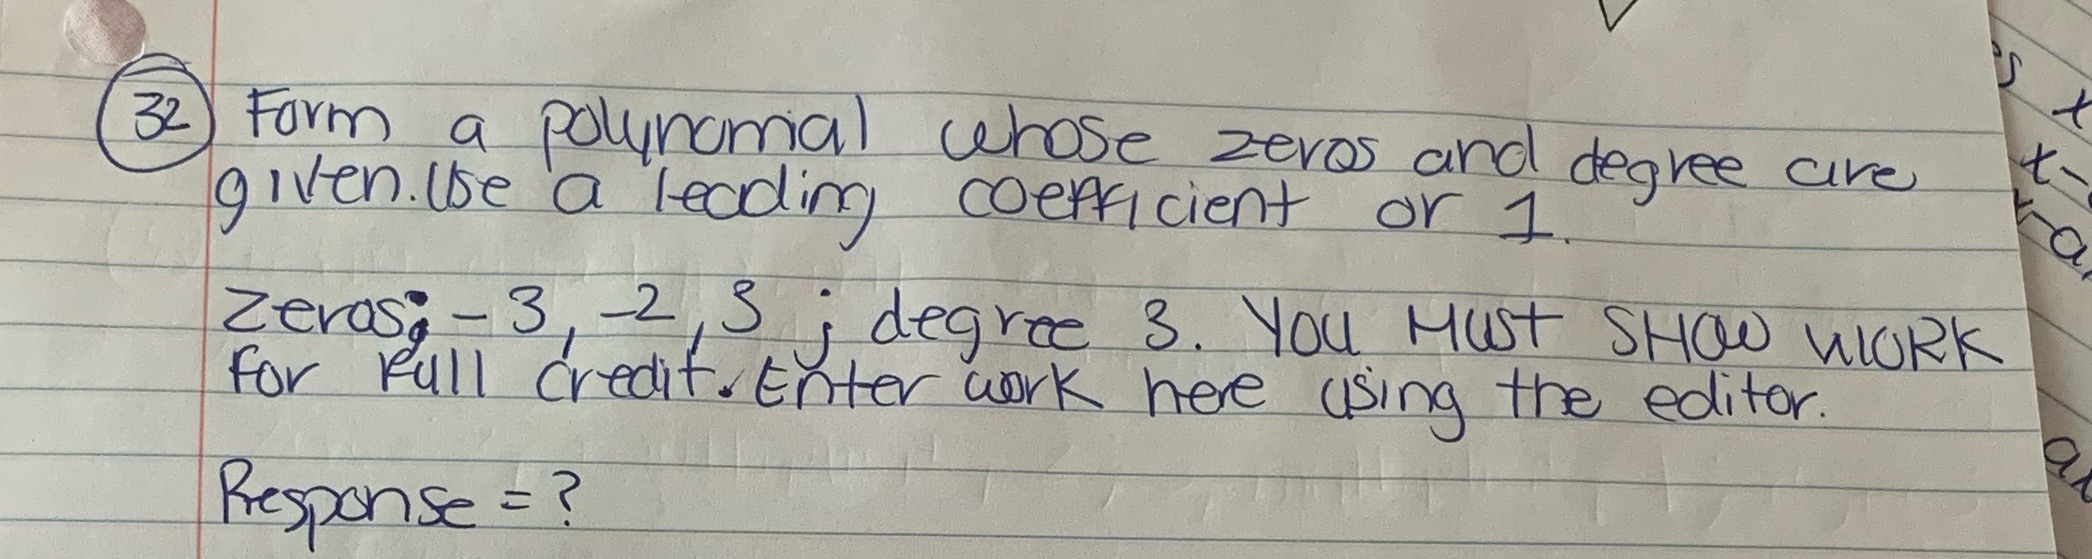 32 Form a polynomial whose zeros and degree are
given. Use a leading coefficient or 1.
Zeros: -3, -2, 3 ; degree 3. You Must SHOW WORK
for full credit. Enter work here using the editor.
Response = ?